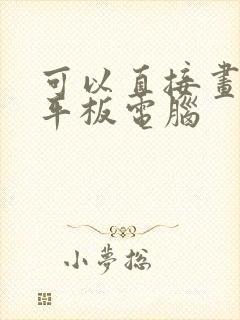 可以直接畫
平板電腦
小夢總